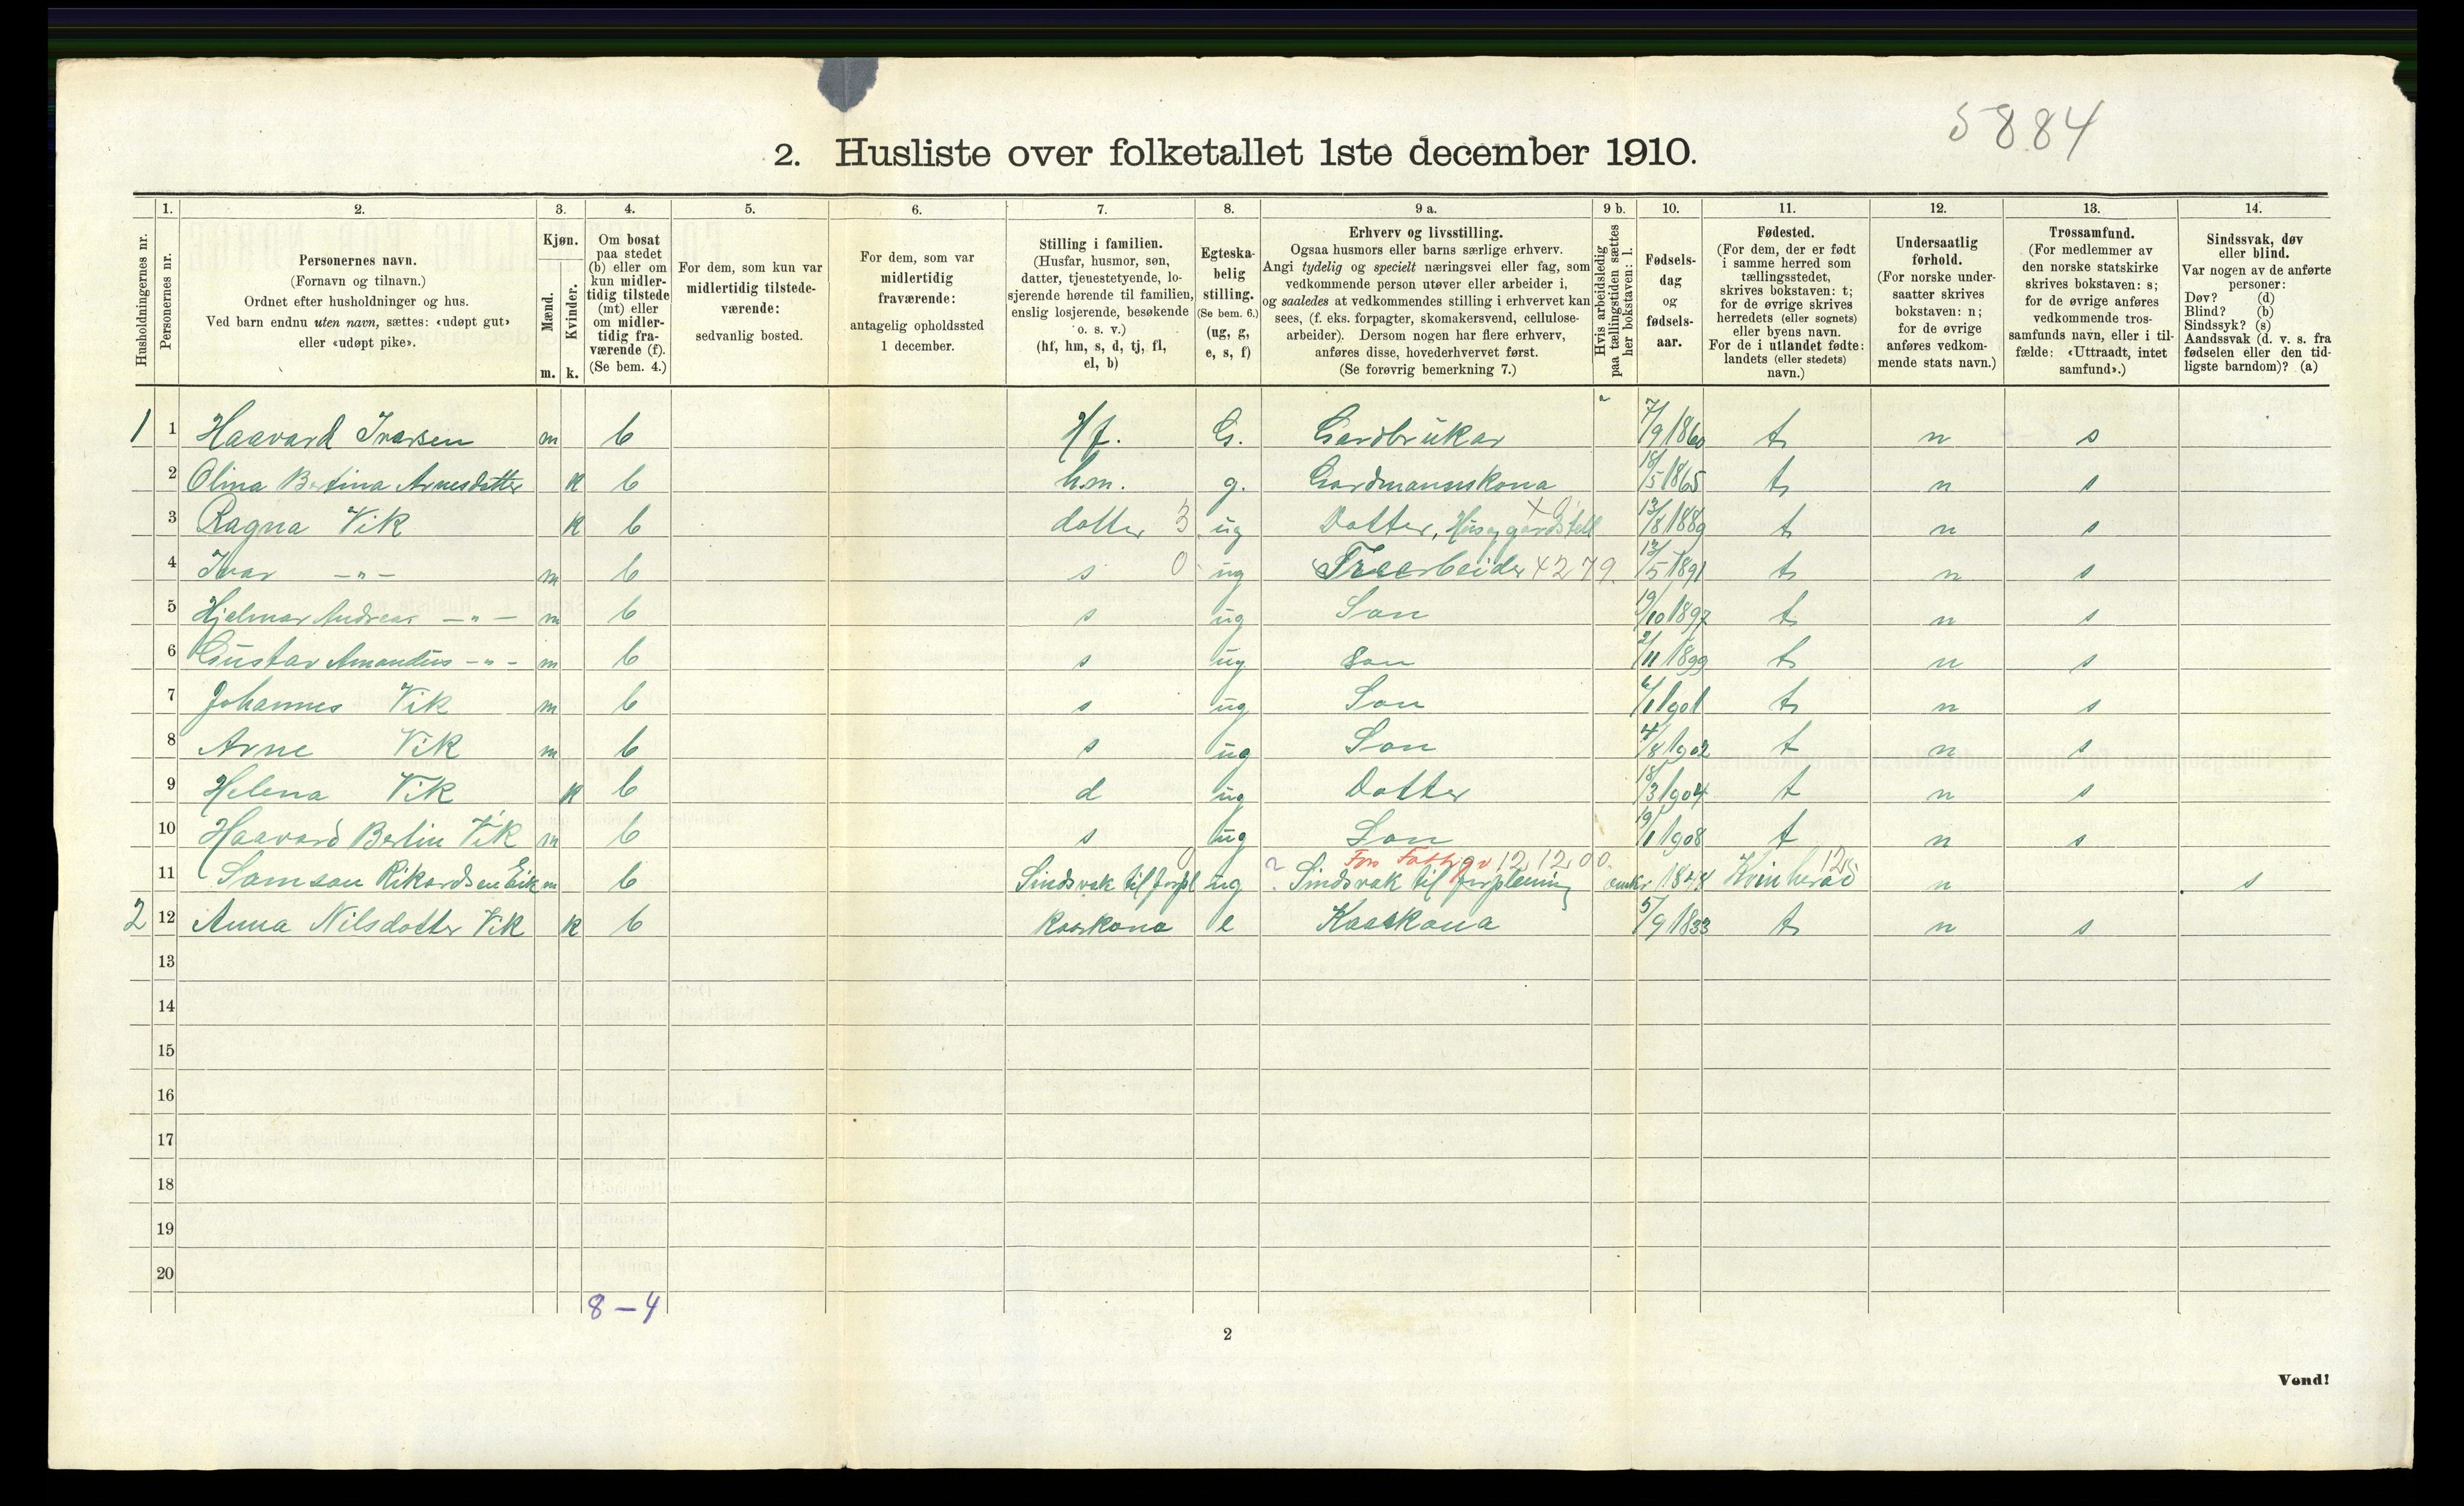 5884
2. Husliste over folketallet 1ste december 1910.
Husholdningernes nr.
1.
Personernes nr.
2.
Personernes navn.
(Fornavn og tilnavn.)
Ordnet efter husholdninger og hus.
Ved barn endnu uten navn, sættes: «udøpt gut»
eller «udøpt pike».
3.
Kjøn.
Mænd.
Kvinder.
m. k.
4.
Om bosat
paa stedet
(b) eller om
kun midler-
tidig tilstede
(mt) eller
om midler-
tidig fra-
værende (f).
(Se bem. 4.)
5.
For dem, som kun var
midlertidig tilstede-
værende:
sedvanlig bosted.
6.
For dem, som var
midlertidig
fraværende:
antagelig opholdssted
1 december.
7.
Stilling i familien.
(Husfar, husmor, søn,
datter, tjenestetyende, lo-
sjerende hørende til familien,
enslig losjerende, besøkende
o. s. v.)
(hf, hm, s, d, tj, fl,
el, b)
8.
Egteska-
belig
stilling.
(Se bem. 6.)
(ug, g,
e, s, f)
9 a.
Erhverv og livsstilling.
Ogsaa husmors eller barns særlige erhverv.
Angi tydelig og specielt næringsvei eller fag, som
vedkommende person utøver eller arbeider i,
og saaledes at vedkommendes stilling i erhvervet kan
sees, (f. eks. forpagter, skomakersvend, cellulose-
arbeider). Dersom nogen har flere erhverv,
anføres disse, hovederhvervet først.
(Se forøvrig bemerkning 7.)
9 b.
Hvis arbeidsledig
paa tællingstiden sættes
her bokstaven: l.
10.
Fødsels-
dag
og
fødsels-
aar.
11.
Fødested.
(For dem, der er født
i samme herred som
tællingsstedet,
skrives bokstaven: t;
for de øvrige skrives
herredets (eller sognets)
eller byens navn.
For de i utlandet fødte:
landets (eller stedets)
navn.)
12.
Undersaatlig
forhold.
(For norske under-
saatter skrives
bokstaven: n;
for de øvrige
anføres vedkom-
mende stats navn.)
13.
Trossamfund.
(For medlemmer av
den norske statskirke
skrives bokstaven: s;
for de øvrige anføres
vedkommende tros-
samfunds navn, eller i til-
fælde: «Uttraadt, intet
samfund».)
14.
Sindssvak, døv
eller blind.
Var nogen av de anførte
personer:
Døv? (d)
Blind? (b)
Sindssyk? (s)
Aandssvak (d. v. s. fra
fødselen eller den tid-
ligste barndom)? (a)
1 1 Haavard Ivarsen m b Hf. G. Gardbrukar 7/9 1860 t n s
2 Olina Bertina Arnesdotter k b hm. g. Gardmannskona 18/5 1865 t n s
3 Ragna Vik k b dotter 3 ug Dotter, Hus og gardstell 13/8 1889 t n s
4 Ivar -"- m b s 0 ug Trearbeider 4279. 13/5 1891 t n s
5 Hjelmar Andreas -"- m b s ug Son 19/10 1897 t n s
6 Gustav Amandus -"- m b s ug Son 2/11 1899 t n s
7 Johannes Vik m b s ug Son 6/1 1901 t n s
8 Arne Vik m b s ug Son 4/8 1902 t n s
9 Helena Vik k b d ug Dotter 18/3 1904 t n s
10 Haavard Berlin Vik m b s ug Son 19/1 1908 t n s
12,12,00.
11 Samson Rikardsen Eik m b Sindsvak til forpl ug ? Sindsvak til forpleining omkr 1848 Kvinherad n s
2 12 Anna Nilsdotter Vik k b Kaarkona e Kaarkona 5/9 1833 t n s
13
14
15
16
17
18
19
20
8 – 4
2
Vend!